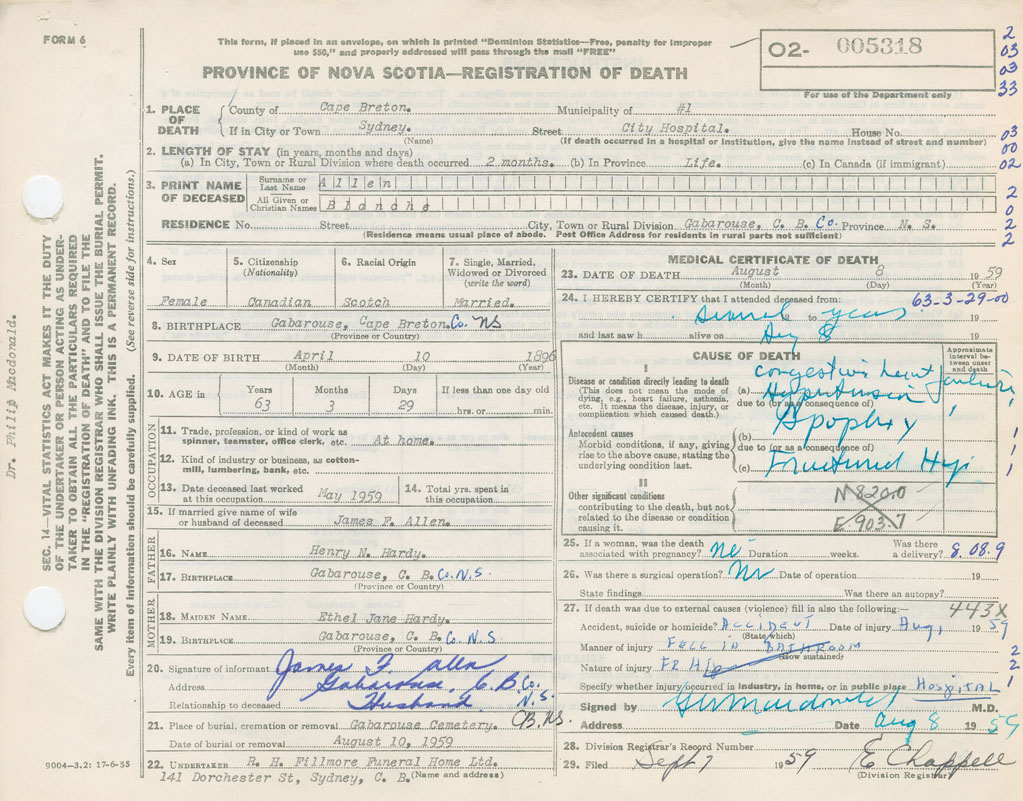 FORM 6
This form, if placed in an envelope, on which is printed "Dominion Statistics—Free, penalty for improper
use $50," and properly addressed will pass through the mail "FREE"
O2- 005318
For use of the Department only
PROVINCE OF NOVA SCOTIA—REGISTRATION OF DEATH
2
03
03
33
03
00
02
2
0
2
2
1. PLACE OF DEATH
County of Cape Breton. Municipality of #1
If in City or Town Sydney. Street City Hospital. House No.
(Name) (If death occurred in a hospital or institution, give the name instead of street and number)
2. LENGTH OF STAY (in years, months and days)
(a) In City, Town or Rural Division where death occurred 2 months. (b) In Province Life. (c) In Canada (if immigrant)
3. PRINT NAME OF DECEASED
Surname or Last Name Allen
All Given or Christian Names Blanche
RESIDENCE No. Street City, Town or Rural Division Gabarouse, C. B. Co. Province N. S.
(Residence means usual place of abode. Post Office Address for residents in rural parts not sufficient)
4. Sex
Female
5. Citizenship
(Nationality)
Canadian
6. Racial Origin
Scotch
7. Single, Married, Widowed or Divorced
(write the word)
Married.
8. BIRTHPLACE Gabarouse, Cape Breton. Co. NS
(Province or Country)
9. DATE OF BIRTH April 10 1896
(Month) (Day) (Year)
10. AGE in
Years Months Days If less than one day old
63 3 29 hrs. or min.
OCCUPATION
11. Trade, profession, or kind of work as
spinner, teamster, office clerk, etc. At home.
12. Kind of industry or business, as cotton-
mill, lumbering, bank, etc.
13. Date deceased last worked
at this occupation May 1959
14. Total yrs. spent in
this occupation
15. If married give name of wife
or husband of deceased James F. Allen.
FATHER
16. NAME Henry N. Hardy.
17. BIRTHPLACE Gabarouse, C. B. Co. N.S.
(Province or Country)
MOTHER
18. MAIDEN NAME Ethel Jane Hardy.
19. BIRTHPLACE Gabarouse, C. B. Co. N.S
(Province or Country)
20. Signature of informant James F. Allen
Address Gabarouse, C.B Co. N.S.
Relationship to deceased Husband
21. Place of burial, cremation or removal Gabarouse Cemetery. CB, NS.
Date of burial or removal August 10, 1959
22. UNDERTAKER R. H. Fillmore Funeral Home Ltd.
141 Dorchester St, Sydney, C. B. (Name and address)
MEDICAL CERTIFICATE OF DEATH
23. DATE OF DEATH August 8 1959
(Month) (Day) (Year)
24. I HEREBY CERTIFY that I attended deceased from: 63-3-29-00
several to years 19
and last saw h alive on Aug 8 19
CAUSE OF DEATH
Approximate interval between onset and death
I
Disease or condition directly leading to death
(This does not mean the mode of
dying, e.g., heart failure, asthenia,
etc. It means the disease, injury, or
complication which caused death.)
(a) congestive heart failure
Hypertension
due to (or as a consequence of)
Apoplexy
Antecedent causes
Morbid conditions, if any, giving
rise to the above cause, stating the
underlying condition last.
(b)
due to (or as a consequence of)
(c) Fractured Hip
II
Other significant conditions
contributing to the death, but not
related to the disease or condition
causing it.
N820.0
E 903.7
25. If a woman, was the death
associated with pregnancy? no Duration weeks. Was there
a delivery? 8.08.9
26. Was there a surgical operation? No Date of operation 19
State findings Was there an autopsy?
27. If death was due to external causes (violence) fill in also the following:— 443X
Accident, suicide or homicide? ACCIDENT Date of injury Aug, 1959
(State which)
Manner of injury FELL IN BATHROOM
(How sustained)
Nature of injury FR Hip
Specify whether injury occurred in industry, in home, or in public place HOSPITAL
2
2
1
Signed by M.D.
Address Date Aug 8 1959
28. Division Registrar's Record Number
29. Filed Sept 7 1959 E Chappell
(Division Registrar)
9004-3.2: 17-6-55
Dr. Philip Macdonald.
SEC. 14—VITAL STATISTICS ACT MAKES IT THE DUTY
OF THE UNDERTAKER OR PERSON ACTING AS UNDER-
TAKER TO OBTAIN ALL THE PARTICULARS REQUIRED
IN THE "REGISTRATION OF DEATH" AND TO FILE THE
SAME WITH THE DIVISION REGISTRAR WHO SHALL ISSUE THE BURIAL PERMIT.
WRITE PLAINLY WITH UNFADING INK. THIS IS A PERMANENT RECORD.
Every item of information should be carefully supplied. (See reverse side for instructions.)